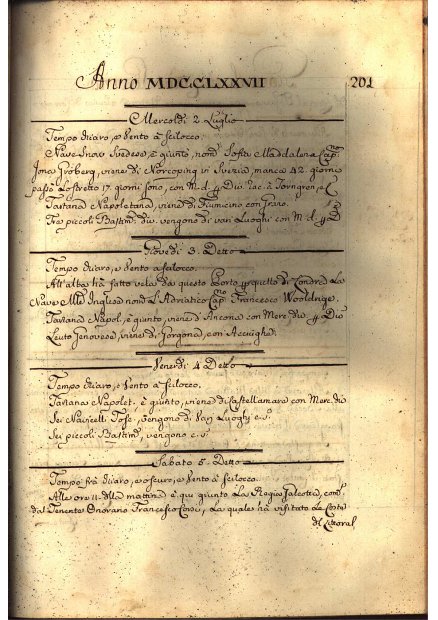 Anno MDCCLXXVII 201
Mercoldi 2 Luglio
Tempo chiaro, e Vento à Scilocco.
Nave Snow Svedese, è giunto, nom.ª Sofia Maddalena Cap.no
Jonas Gröberg, viene di Norcoping in Svezia, manca 42. giorni,
passò lo stretto 17. giorni sono, con M. d.
Tartana Napoletana, viene di Fiumicino con Grano.
Tre piccoli Bastim. div. vengono di vari Luoghi con M. d.
Giovedi 3. Detto
Tempo chiaro, e Vento à scilocco.
All'alba hà fatto vela da questo Porto p quello di Londra La
Nave Inglese nom.ª L'Adriatico Cap.no Francesco Wooldrige.
Tartana Napol. è giunto, viene d'Ancona con Merc. div.
Leuto Genovese, viene di Gorgona con Acciughe.
Venerdi 4 Detto
Tempo chiaro, e Vento à Scilocco.
Tartana Napolet. è giunto, viene di Castellamare con Merc. div.
Sei Navicelli Tosc. vengono di Vari Luoghi c. s.
Sei piccoli Bastim. vengono c. s.
Sabato 5. Detto
Tempo frà chiaro, e oscuro, e Vento à scilocco.
Alle ore 11. della mattina è qui giunto La Regia Galeotta, com.
dal Tenente Onorario Francesco Corsi, La quale hà visitato Le Coste
del Littoral